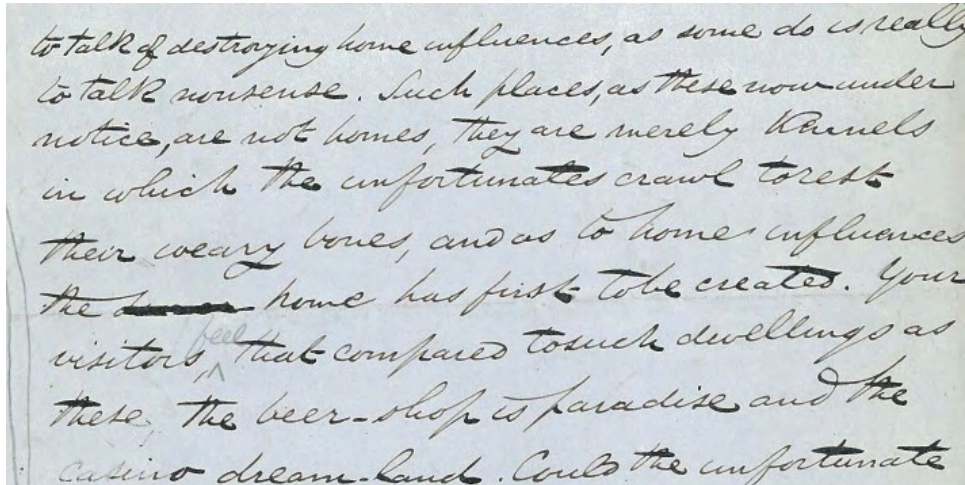 to talk of destroying home influences, as some do is really
to talk nonsense. Such places, as these now under
notice, are not homes, they are merely Kennels
in which the unfortunates crawl to rest
their weary bones, and as to home influences
the home has first to be created. Your
visitors, feel that compared to such dwellings as
these, the beer-shop is paradise and the
casino dream-land. Could the unfortunate